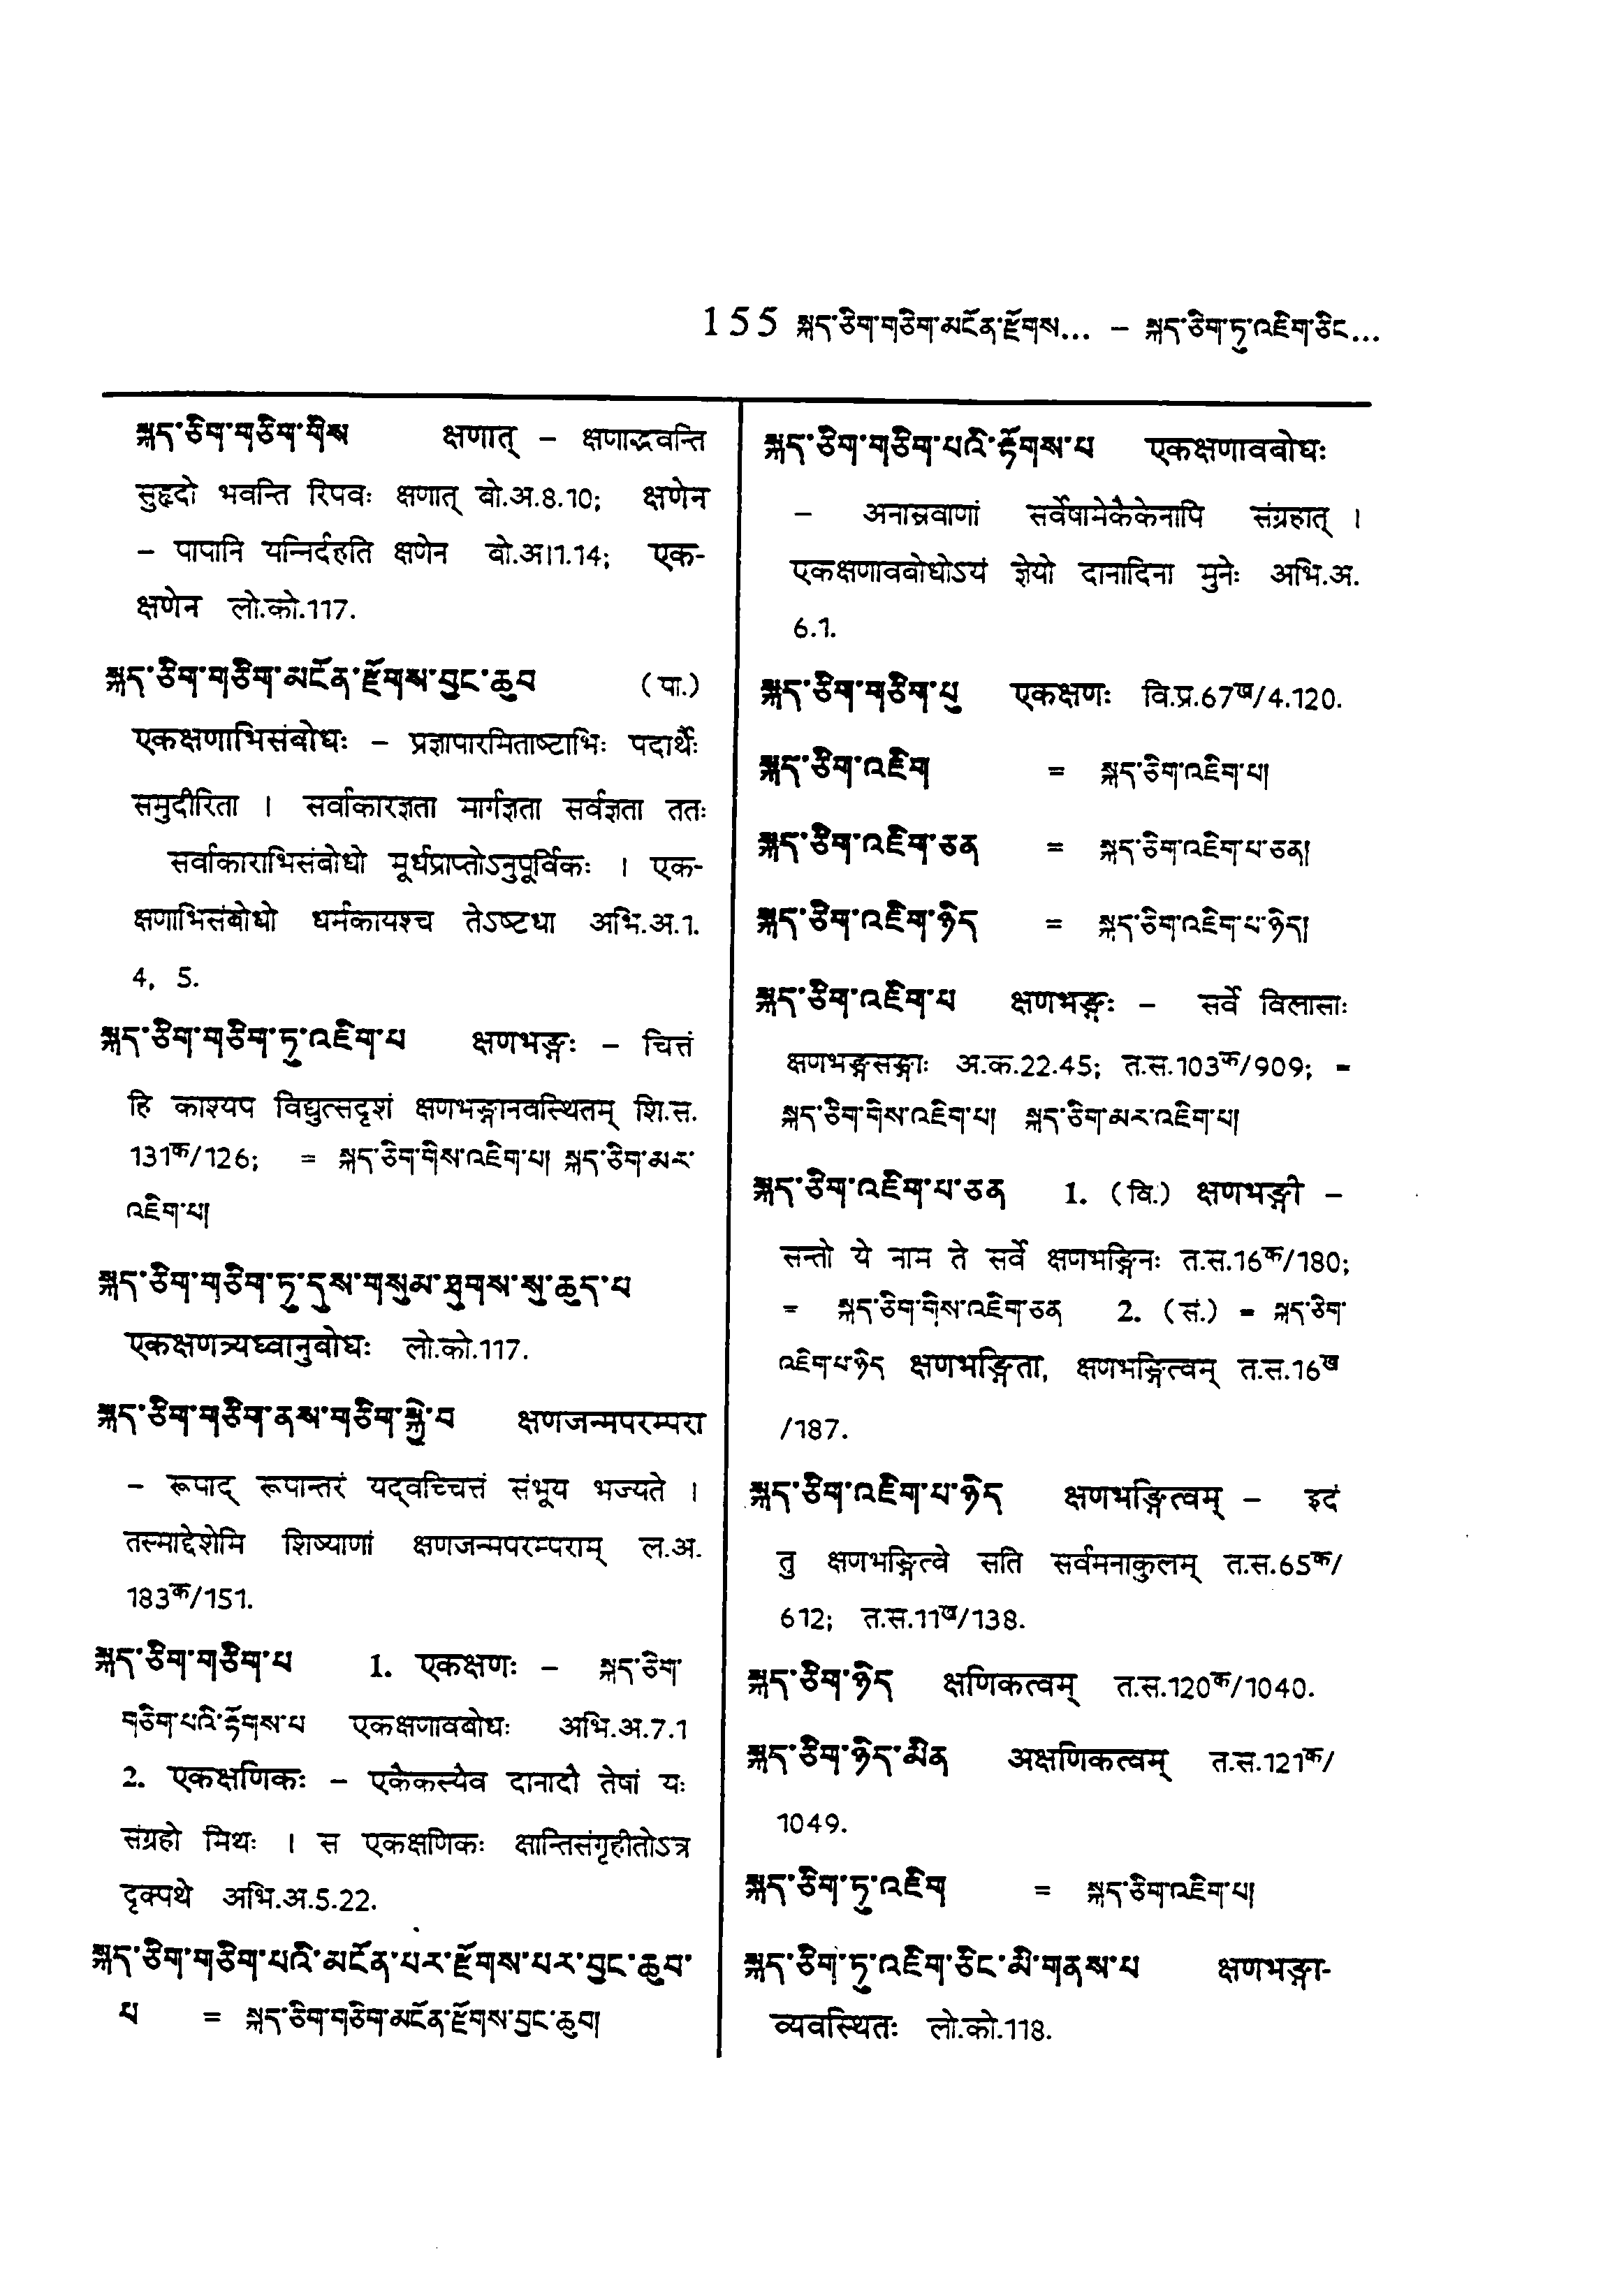 155 སྐད་ཅིག་གཅིག་མངོན་རྫོགས... – སྐད་ཅིག་ཏུ་འཇིག་ཅིང...
སྐད་ཅིག་གཅིག་གིས क्षणात् – क्षणाद्भवन्ति
सुहृदो भवन्ति रिपवः क्षणात् बो.अ.8.10; क्षणेन
– पापानि यन्निर्दहति क्षणेन बो.अ।1.14; एक-
क्षणेन लो.को.117.
སྐད་ཅིག་གཅིག་མངོན་རྫོགས་བྱང་ཆུབ (पा.)
एकक्षणाभिसंबोधः – प्रज्ञापारमिताष्टाभिः पदार्थैः
समुदीरिता । सर्वाकारज्ञता मार्गज्ञता सर्वज्ञता ततः
सर्वाकाराभिसंबोधो मूर्धप्राप्तोऽनुपूर्विकः । एक-
क्षणाभिसंबोधो धर्मकायश्च तेऽष्टधा अभि.अ.1.
4, 5.
སྐད་ཅིག་གཅིག་ཏུ་འཇིག་པ क्षणभङ्गः – चित्तं
हि काश्यप विद्युत्सदृशं क्षणभङ्गानवस्थितम् शि.स.
131क/126; = སྐད་ཅིག་གིས་འཇིག་པ། སྐད་ཅིག་མར་
འཇིག་པ།
སྐད་ཅིག་གཅིག་ཏུ་དུས་གསུམ་ཐུགས་སུ་ཆུད་པ
एकक्षणत्र्यध्वानुबोधः लो.को.117.
སྐད་ཅིག་གཅིག་ནས་གཅིག་སྐྱེ་བ क्षणजन्मपरम्परा
– रूपाद् रूपान्तरं यद्वच्चित्तं संभूय भज्यते ।
तस्माद्देशेमि शिष्याणां क्षणजन्मपरम्पराम् ल.अ.
183क/151.
སྐད་ཅིག་གཅིག་པ 1. एकक्षणः – སྐད་ཅིག་
གཅིག་པའི་རྟོགས་པ एकक्षणावबोधः अभि.अ.7.1
2. एकक्षणिकः – एकैकस्यैव दानादौ तेषां यः
संग्रहो मिथः । स एकक्षणिकः क्षान्तिसंगृहीतोऽत्र
दृक्पथे अभि.अ.5.22.
སྐད་ཅིག་གཅིག་པའི་མངོན་པར་རྫོགས་པར་བྱང་ཆུབ་
པ = སྐད་ཅིག་གཅིག་མངོན་རྫོགས་བྱང་ཆུབ།
སྐད་ཅིག་གཅིག་པའི་རྟོགས་པ एकक्षणावबोधः
– अनास्रवाणां सर्वेषामेकैकेनापि संग्रहात् ।
एकक्षणावबोधोऽयं ज्ञेयो दानादिना मुनेः अभि.अ.
6.1.
སྐད་ཅིག་གཅིག་པུ एकक्षणः वि.प्र.67ख/4.120.
སྐད་ཅིག་འཇིག = སྐད་ཅིག་འཇིག་པ།
སྐད་ཅིག་འཇིག་ཅན = སྐད་ཅིག་འཇིག་པ་ཅན།
སྐད་ཅིག་འཇིག་ཉིད = སྐད་ཅིག་འཇིག་པ་ཉིད།
སྐད་ཅིག་འཇིག་པ क्षणभङ्गः – सर्वे विलासाः
क्षणभङ्गसङ्गाः अ.क.22.45; त.स.103क/909; =
སྐད་ཅིག་གིས་འཇིག་པ། སྐད་ཅིག་མར་འཇིག་པ།
སྐད་ཅིག་འཇིག་པ་ཅན 1. (वि.) क्षणभङ्गी –
सन्तो ये नाम ते सर्वे क्षणभङ्गिनः त.स.16क/180;
= སྐད་ཅིག་གིས་འཇིག་ཅན 2. (सं.) = སྐད་ཅིག་
འཇིག་པ་ཉིད क्षणभङ्गिता, क्षणभङ्गित्वम् त.स.16ख
/187.
སྐད་ཅིག་འཇིག་པ་ཉིད क्षणभङ्गित्वम् – इदं
तु क्षणभङ्गित्वे सति सर्वमनाकुलम् त.स.65क/
612; त.स.11ख/138.
སྐད་ཅིག་ཉིད क्षणिकत्वम् त.स.120क/1040.
སྐད་ཅིག་ཉིད་མིན अक्षणिकत्वम् त.स.121क/
1049.
སྐད་ཅིག་ཏུ་འཇིག = སྐད་ཅིག་འཇིག་པ།
སྐད་ཅིག་ཏུ་འཇིག་ཅིང་མི་གནས་པ क्षणभङ्गा-
व्यवस्थितः लो.को.118.